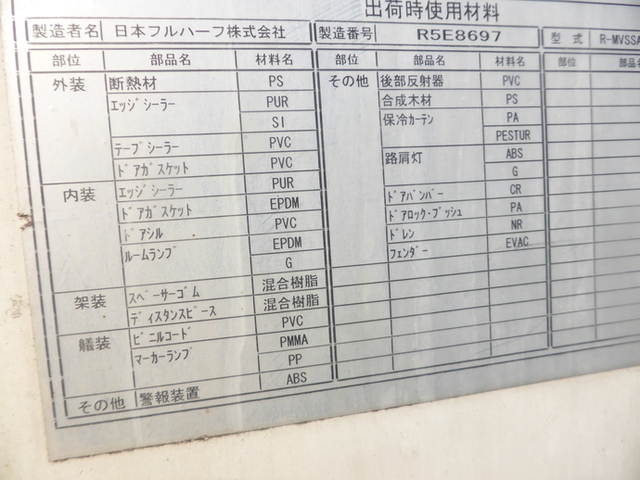 出荷時使用材料
製造者名 日本フルハーフ株式会社 製造番号 R5E8697 型式 R-MVSSA
部位 部品名 材料名 部位 部品名 材料名 部位 部品名
外装 断熱材 PS その他 後部反射器 PVC
エッジシーラー PUR 合成木材 PS
SI 保冷カーテン PA
テープシーラー PVC PESTUR
ドアガスケット PVC 路肩灯 ABS
内装 エッジシーラー PUR G
ドアガスケット EPDM ドアバンパー CR
ドアシル PVC ドアロック・ブッシュ PA
ルームランプ EPDM ドレン NR
G フェンダー EVAC
架装 スペーサーゴム 混合樹脂
ディスタンスピース 混合樹脂
艤装 ビニルコード PVC
マーカーランプ PMMA
PP
その他 警報装置 ABS